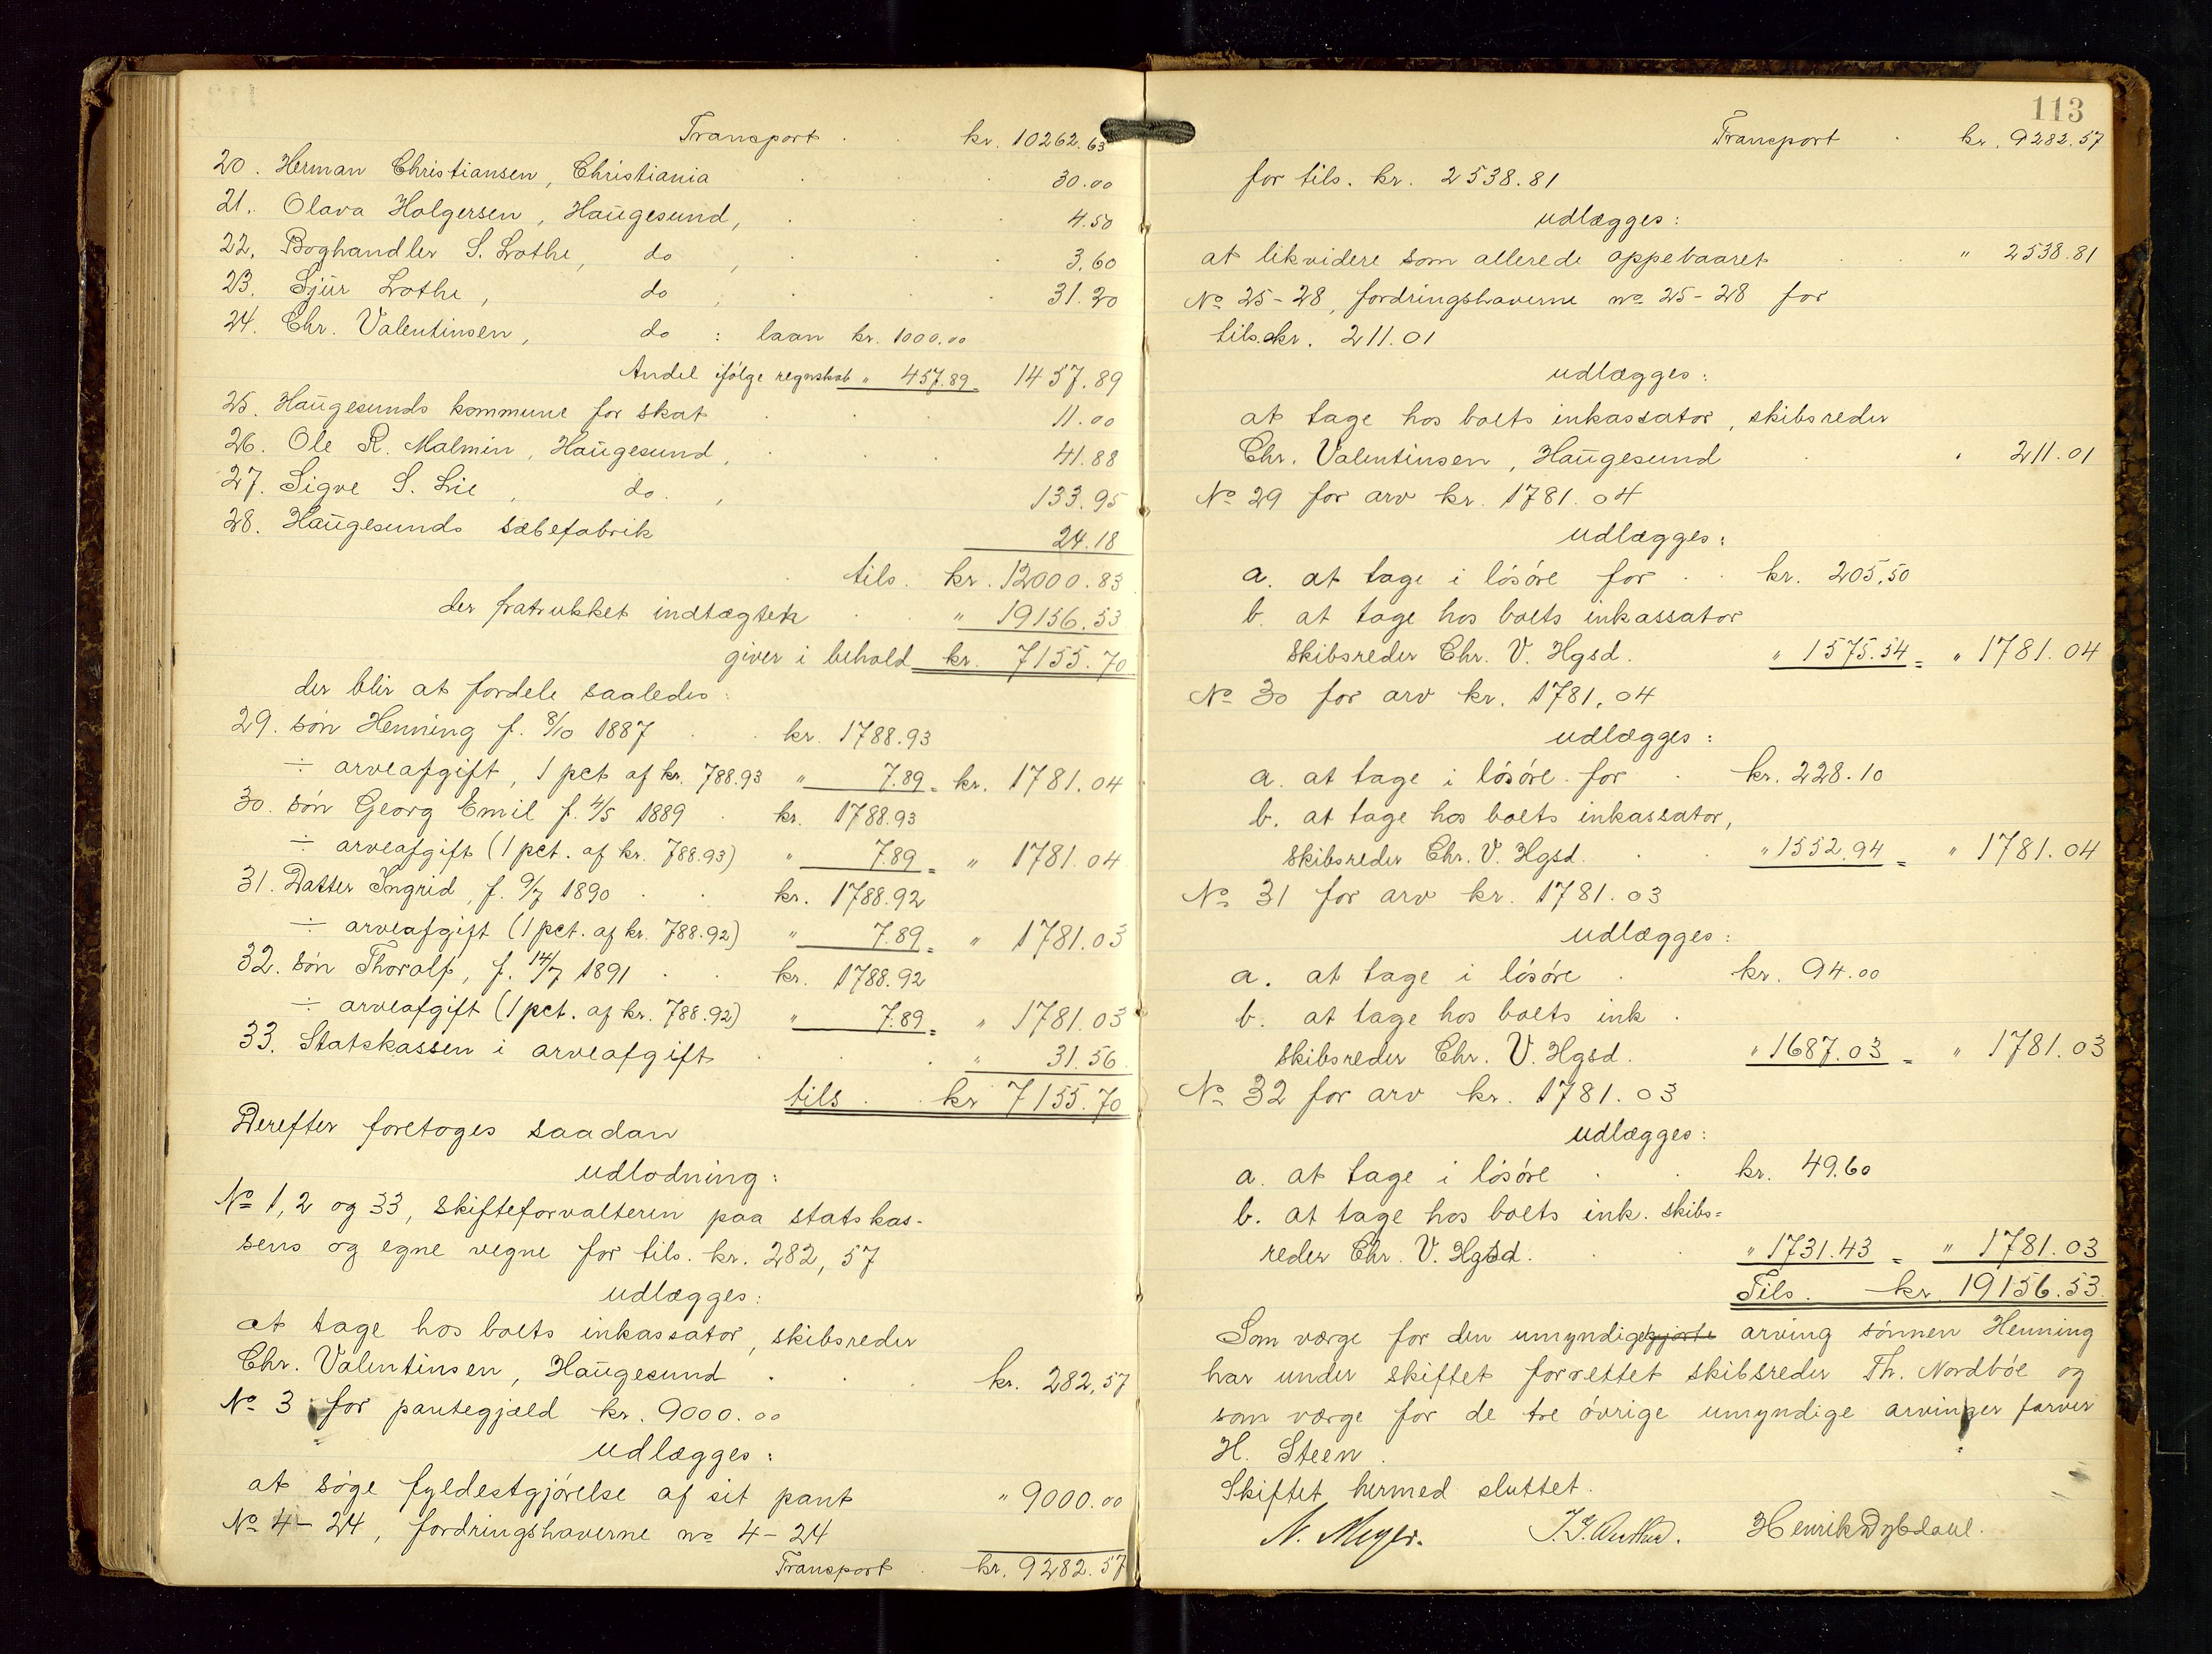 Transport . . kr. 10262.63
20. Herman Christiansen, Christiania . . . 30.00
21. Olava Holgersen, Haugesund, . . . 4.50
22. Boghandler S. Lothe, do , . . . 3.60
23. Sjur Lothe, do , . . . 31.20
24. Chr. Valentinsen, do : laan kr. 1000.00
Andel ifölge regnskab " 457.89 = 1457.89
25. Haugesunds kommune for skat . . . 11.00
26. Ole R. Malmin, Haugesund, . . . 41.88
27. Sigve S. Lie , do. , 133.95
28. Haugesunds sæbefabrik 24.18
tils. kr. 12000.83
der fratrukket indtægten . . " 19156.53
giver i behold kr. 7155.70
der blir at fordele saaledes:
29. sön Henning f. 8/10 1887 . . kr. 1788.93
÷ arveafgift, 1 pct af kr. 788.93 " 7.89 = kr. 1781.04
30. sön Georg Emil f. 4/5 1889 . kr. 1788.93
÷ arveafgift (1 pct. af kr. 788.93) " 7.89 = " 1781.04
31. Datter Ingrid, f. 9/7 1890 . . kr. 1788.92
÷ arveafgift (1 pct. af kr. 788.92) " 7.89 = " 1781.03
32. sön Thoralf, f. 14/7 1891 . . kr. 1788.92
÷ arveafgift (1 pct. af kr. 788.92) " 7.89 = " 1781.03
33. Statskassen i arveafgift . . . " 31.56
tils . . kr 7155.70
Derefter foretoges saadan
udlodning:
No 1, 2 og 33, skifteforvalteren paa statskas-
sens og egne vegne for tils. kr. 282,57
udlægges:
at tage hos boets inkassator, skibsreder
Chr. Valentinsen, Haugesund . . . kr. 282,57
No 3 for pantegjæld kr. 9000.00
udlægges:
at söge fyldestgjörelse af sit pant " 9000.00
No 4-24, fordringshaverne no 4-24
Transport . kr. 9282.57
113
Transport . kr. 9282.57
for tils. kr. 2538.81
udlægges:
at likvidere som allerede oppebaaret . . " 2538.81
No 25-28, fordringshaverne no 25-28 for
tils. kr. 211.01
udlægges:
at tage hos boets inkassator, skibsreder
Chr. Valentinsen, Haugesund . . 211.01
No 29 for arv kr. 1781.04
udlægges:
a. at tage i lösöre for . . kr. 205,50
b. at tage hos boets inkassator
skibsreder Chr. V. Hgsd. " 1575.54 = " 1781.04
No 30 for arv kr. 1781,04
udlægges:
a. at tage i lösöre for . kr. 228.10
b. at tage hos boets inkassator,
skibsreder Chr. V. Hgsd. . . " 1552.94 = " 1781.04
No 31 for arv kr. 1781.03
udlægges:
a. at tage i lösöre . kr. 94.00
b. at tage hos boets ink.
skibsreder Chr. V. Hgsd. " 1687.03 = " 1781.03
No 32 for arv kr. 1781.03
udlægges:
a. at tage i lösöre . . kr. 49.60
b. at tage hos boets ink. skibs=
reder Chr. V. Hgsd. . . " 1731.43 = " 1781.03
Tils. kr 19156.53
Som værge for den umyndigegjorte arving sönnen Henning
har under skiftet forrettet skibsreder Th. Nordböe og
som værge for de tre övrige umyndige arvinger farver
H. Steen.
Skiftet hermed sluttet.
N. Meyer. Henrik Dybdahl.